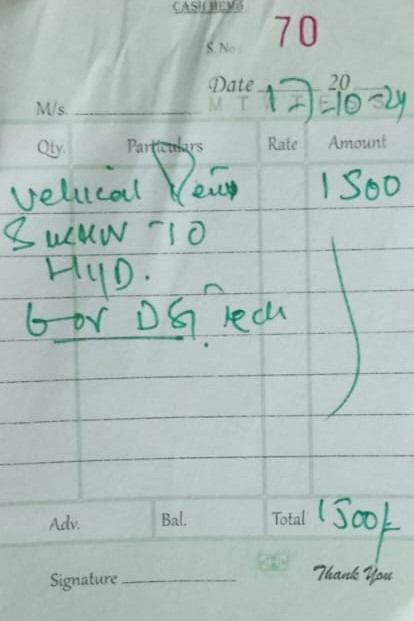 CASH MEMO
S. No: 70
Date 17-10-24 20
M/s.
M T W T F S S
Qty. Particulars Rate Amount
Vehical 1500
TO
HYD.
For DG Tech
Adv. Bal. Total 1500/-
Signature
Thank You